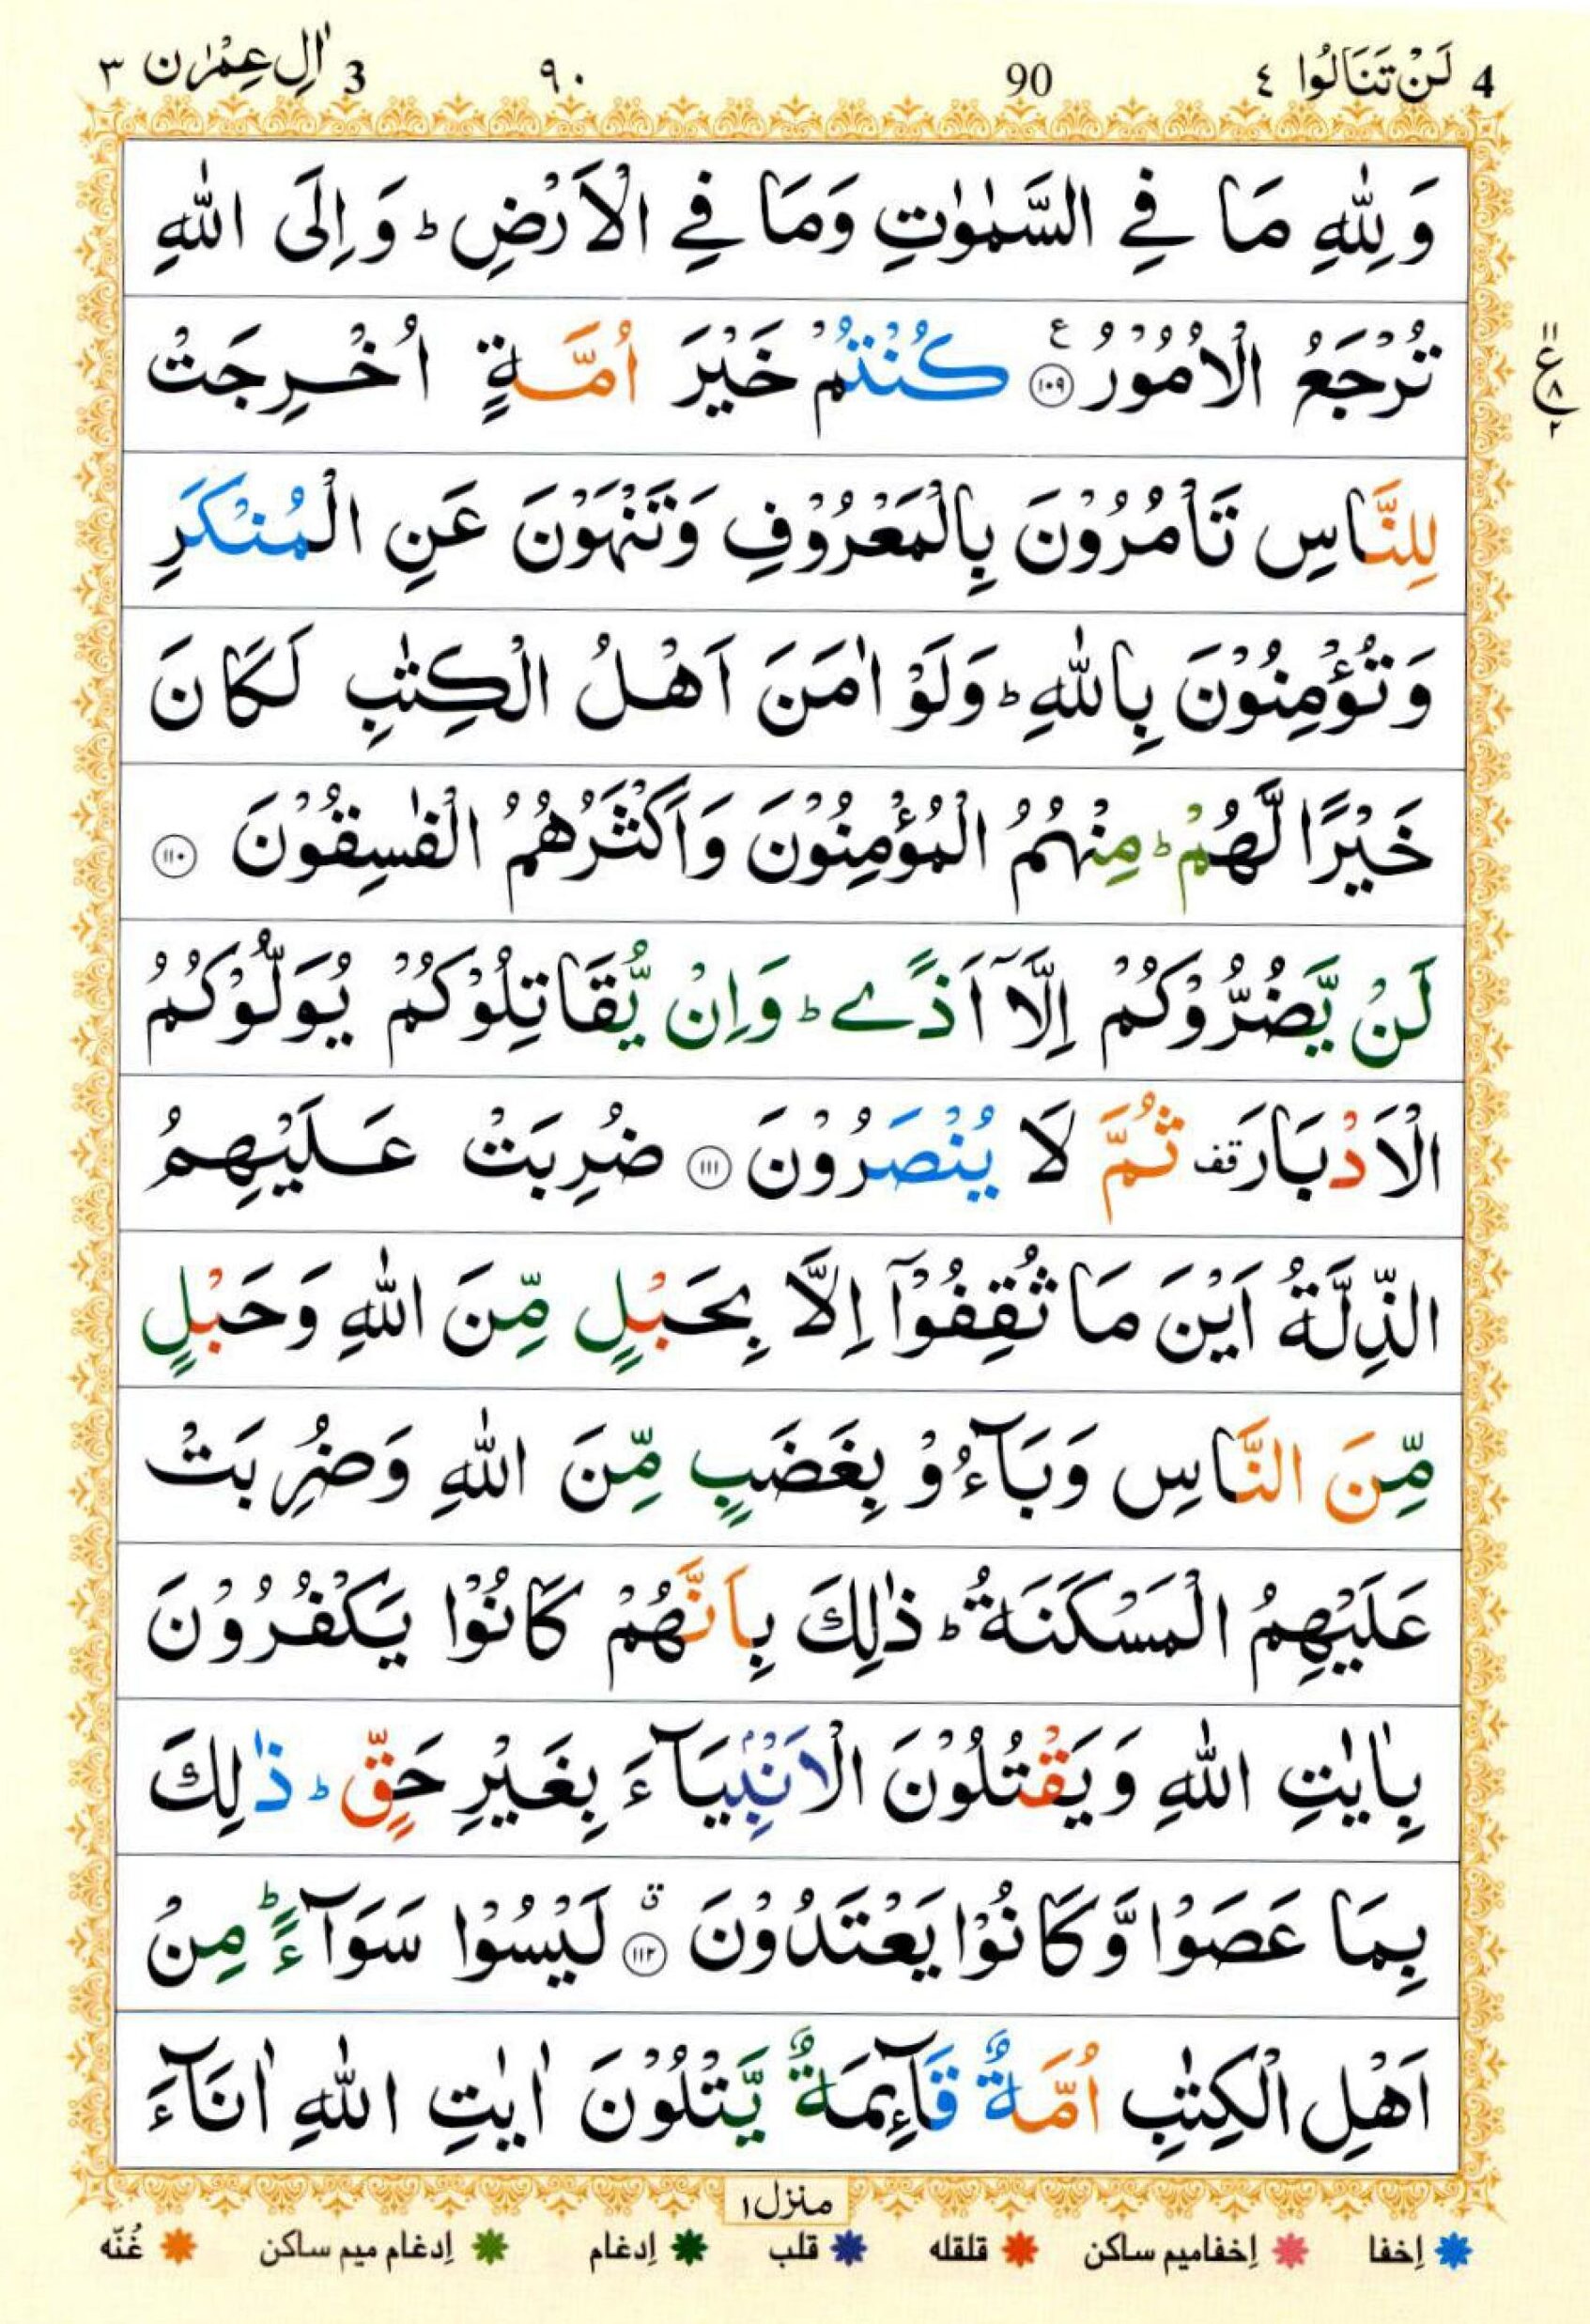 4 لَنْ تَنَالُوا ٤ 90 ٩٠ 3 اٰلِ عِمْرٰن ٣
وَ لِلّٰهِ مَا فِي السَّمٰوٰتِ وَمَا فِي الْاَرْضِ ؕ وَ اِلَى اللّٰهِ
تُرْجَعُ الْاُمُوْرُ ﴿۱۰۹﴾ ع كُنْتُمْ خَيْرَ اُمَّةٍ اُخْرِجَتْ
١١ ع ٨ ٢
لِلنَّاسِ تَاْمُرُوْنَ بِالْمَعْرُوْفِ وَتَنْهَوْنَ عَنِ الْمُنْكَرِ
وَتُؤْمِنُوْنَ بِاللّٰهِ ؕ وَلَوْ اٰمَنَ اَهْلُ الْكِتٰبِ لَكَانَ
خَيْرًا لَّهُمْ ؕ مِنْهُمُ الْمُؤْمِنُوْنَ وَاَكْثَرُهُمُ الْفٰسِقُوْنَ ﴿۱۱۰﴾
لَنْ يَّضُرُّوْكُمْ اِلَّاۤ اَذًى ؕ وَاِنْ يُّقَاتِلُوْكُمْ يُوَلُّوْكُمُ
الْاَدْبَارَ قف ثُمَّ لَا يُنْصَرُوْنَ ﴿۱۱۱﴾ ضُرِبَتْ عَلَيْهِمُ
الذِّلَّةُ اَيْنَ مَا ثُقِفُوْۤا اِلَّا بِحَبْلٍ مِّنَ اللّٰهِ وَحَبْلٍ
مِّنَ النَّاسِ وَبَآءُوْ بِغَضَبٍ مِّنَ اللّٰهِ وَضُرِبَتْ
عَلَيْهِمُ الْمَسْكَنَةُ ؕ ذٰلِكَ بِاَنَّهُمْ كَانُوْا يَكْفُرُوْنَ
بِاٰيٰتِ اللّٰهِ وَيَقْتُلُوْنَ الْاَنْۢبِيَآءَ بِغَيْرِ حَقٍّ ؕ ذٰلِكَ
بِمَا عَصَوْا وَّكَانُوْا يَعْتَدُوْنَ ﴿۱۱۲﴾ ق لَيْسُوْا سَوَآءً ؕ مِنْ
اَهْلِ الْكِتٰبِ اُمَّةٌ قَآئِمَةٌ يَّتْلُوْنَ اٰيٰتِ اللّٰهِ اٰنَآءَ
منزل ١
إخفا إخفاميم ساكن قلقله قلب إدغام إدغام ميم ساكن غُنّه